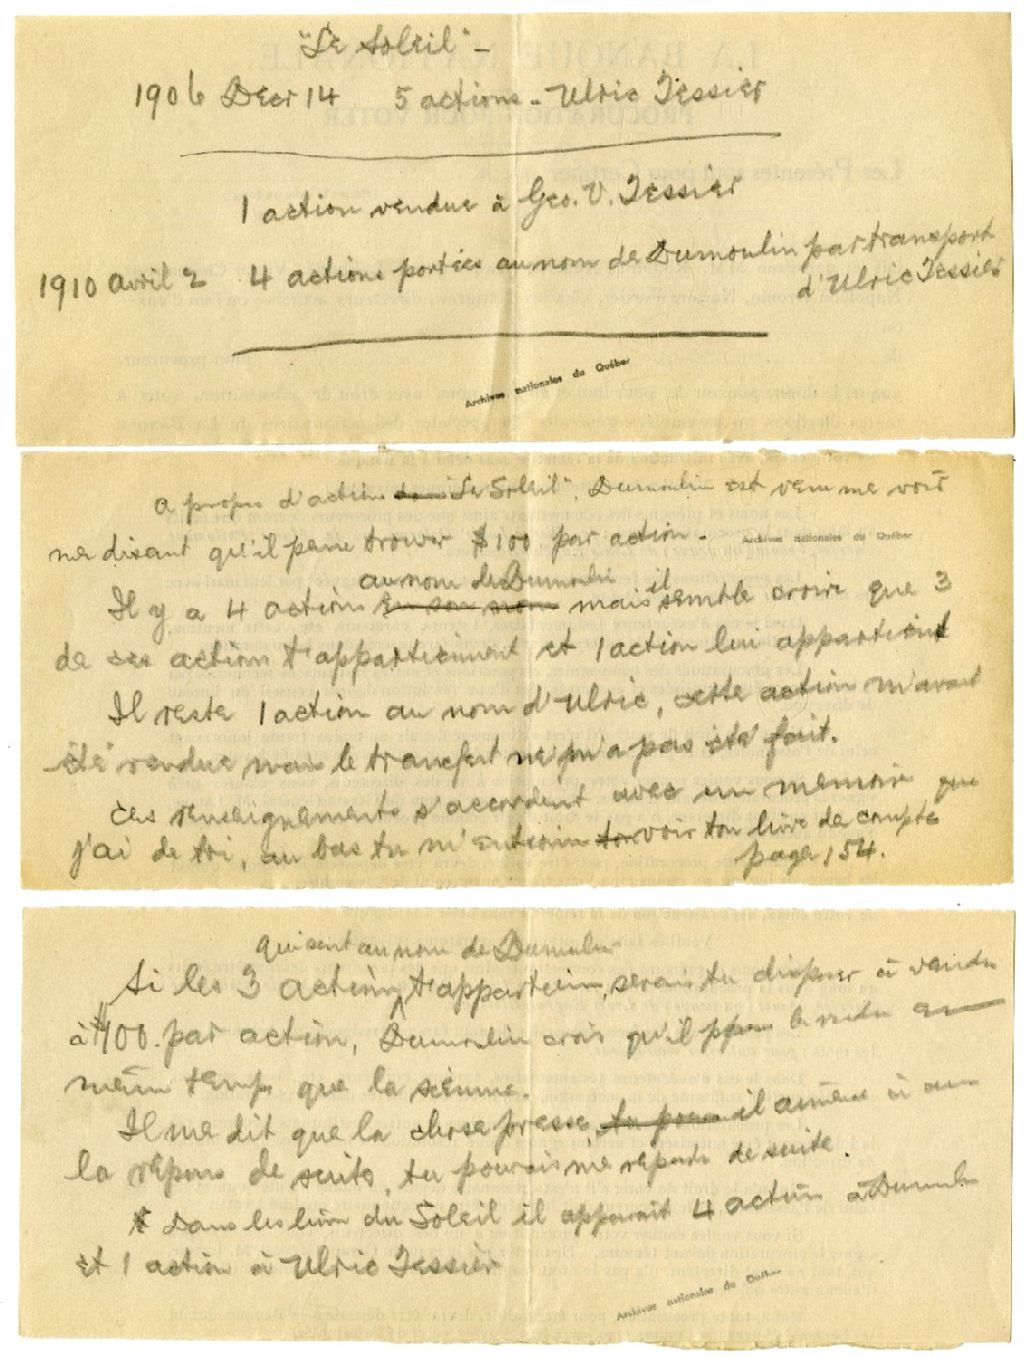 "Le Soleil" -
1906 Decr 14 5 actions - Ulric Tessier
1 action vendue à Geo. V. Tessier
1910 Avril 2 4 actions portées au nom de Dumoulin par transport
d'Ulric Tessier
Archives nationales du Québec
A propos d'action "Le Soleil", Dumoulin est venu me voir
me disant qu'il peut trouver $100 par action -
Archives nationales du Québec
au nom de Dumoulin
Il y a 4 actions mais il semble croire que 3
de ces action t'appartiennent et 1 action lui appartient
Il reste 1 action au nom d'Ulric, cette action m'avait
été vendue mais le transfert ne m'a pas été fait.
Ces renseignements s'accordent avec un memoire que
j'ai de toi, au bas tu m' voir ton livre de compte
page 154.
qui sont au nom de Dumoulin
Si les 3 actions t'appartien, serais tu disposer à vendre
à $100. par action, Dumoulin crois qu'il le vendre en
même temps que la sienne.
Il me dit que la chose presse, il aimerai à avoir
la répons de suite, tu pourais me répondre de suite.
Dans les livre du Soleil il apparait 4 action à Dumoulin
et 1 action à Ulric Tessier
Archives nationales du Québec